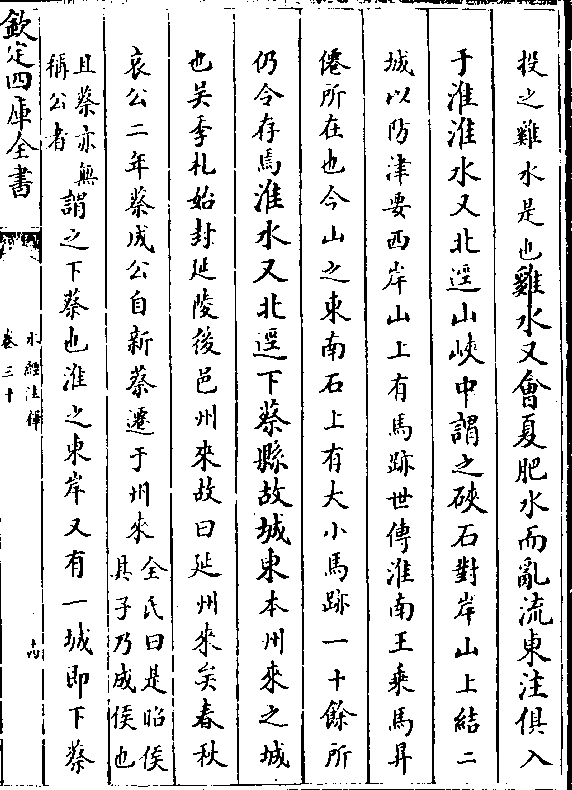 投之雞水是也雞水又會夏肥水而亂流東注俱入
于淮淮水又北逕山峽中謂之硤石對岸山上結二
城以防津要西岸山上有馬跡世傳淮南王乘馬昇
僊所在也今山之東南石上有大小馬跡一十餘所
仍今存焉淮水又北逕下蔡縣故城東本州來之城
也吳季札始封延陵後邑州來故曰延州來矣春秋
哀公二年蔡成公自新蔡遷于州來全氏曰是昭侯其子乃成侯也
且蔡亦無稱公者謂之下蔡也淮之東岸又有一城即下蔡
欽定四庫全書
水經注釋
卷三十